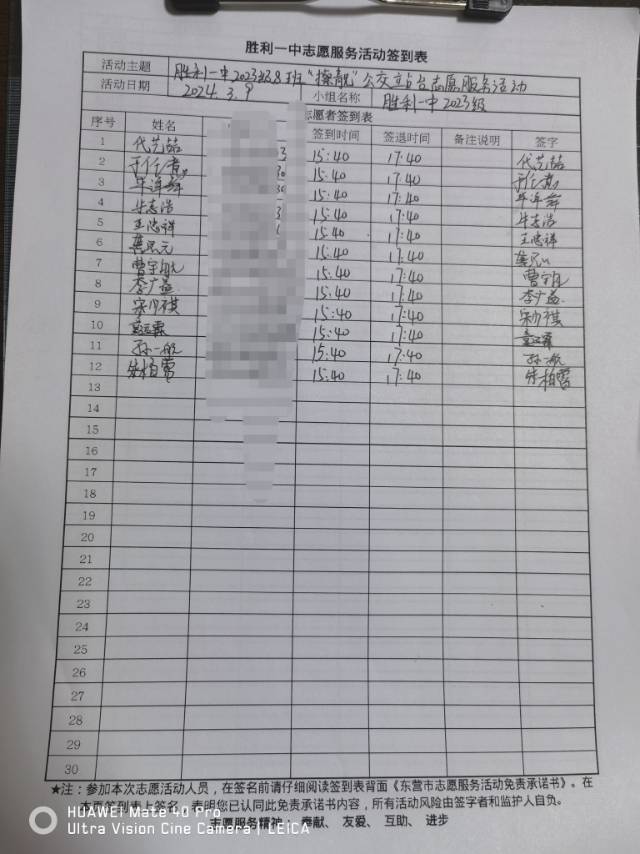 胜利一中志愿服务活动签到表
活动主题 胜利一中2023级8班“擦靓”公交站台志愿服务活动
活动日期 2024.3.9 小组名称 胜利一中2023级
志愿者签到表
序号 姓名 签到时间 签退时间 备注说明 签字
1 15:40 17:40
2 15:40 17:40
3 15:40 17:40
4 牛志浩 15:40 17:40 牛志浩
5 王忠祥 15:40 17:40 王忠祥
6 15:40 17:40
7 曹宇航 15:40 17:40 曹宇航
8 李广益 15:40 17:40 李广益
9 15:40 17:40
10 15:40 17:40
11 孙一航 15:40 17:40 孙一航
12 15:40 17:40
13
14
15
16
17
18
19
20
21
22
23
24
25
26
27
28
29
30
★注：参加本次志愿活动人员，在签名前请仔细阅读签到表背面《东营市志愿服务活动免责承诺书》。在
本页签到表上签名，表明您已认同此免责承诺书内容，所有活动风险由签字者和监护人自负。
志愿服务精神：奉献、友爱、互助、进步
HUAWEI Mate 40 Pro
Ultra Vision Cine Camera | LEICA